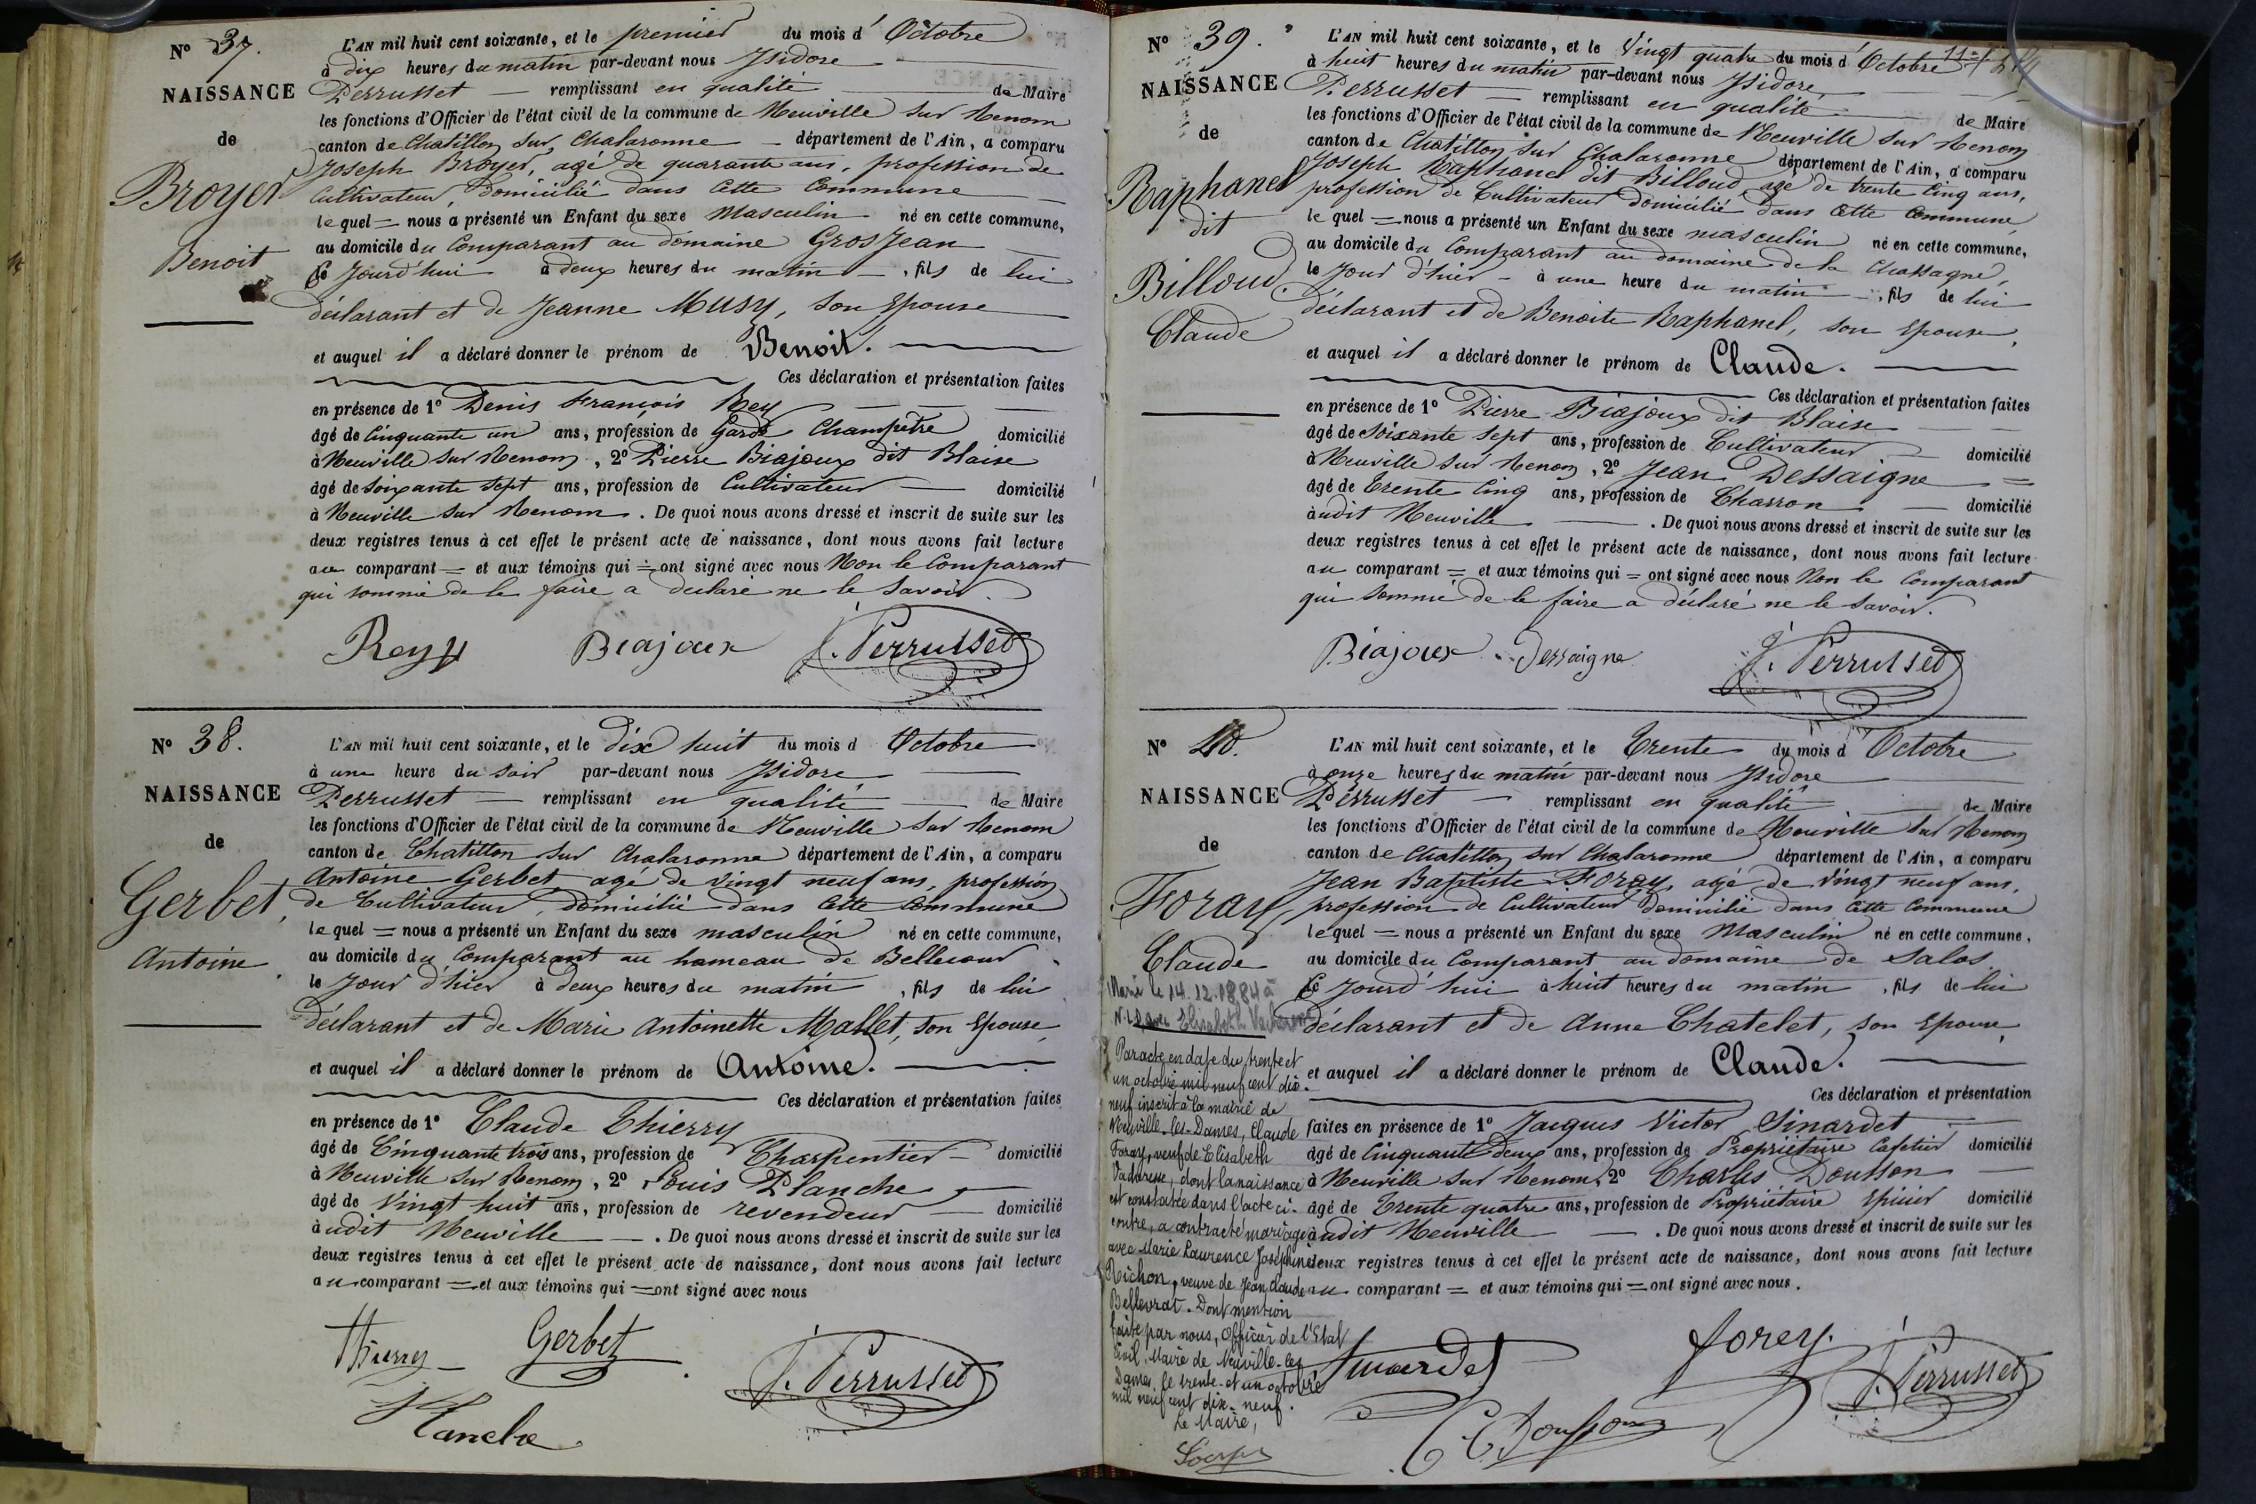 N° 37.
NAISSANCE
de
Broyer
Benoit
L'AN mil huit cent soixante, et le premier du mois d' Octobre
à dix heures du matin par-devant nous Isidore
Perrusset remplissant en qualité de Maire
les fonctions d'Officier de l'état civil de la commune de Neuville sur Renom
canton de Chatillon sur Chalaronne département de l'Ain, a comparu
Joseph Broyer, agé de quarante ans, profession de
Cultivateur, domicilié dans cette Commune
lequel = nous a présenté un Enfant du sexe Masculin né en cette commune,
au domicile du Comparant au domaine GrosJean
Ce Jourd'hui à deux heures du matin, fils de lui
déclarant et de Jeanne Musy, son Epouse
et auquel il a déclaré donner le prénom de Benoit.
Ces déclaration et présentation faites
en présence de 1° Denis François Rey
âgé de Cinquante un ans, profession de Garde Champêtre domicilié
à Neuville sur Renom, 2° Pierre Biajoux dit Blaise
âgé de soixante sept ans, profession de Cultivateur domicilié
à Neuville sur Renom. De quoi nous avons dressé et inscrit de suite sur les
deux registres tenus à cet effet le présent acte de naissance, dont nous avons fait lecture
au comparant = et aux témoins qui = ont signé avec nous Non le Comparant
qui sommé de le faire a declaré ne le savoir.
Rey Biajoux J. Perrusset
N° 38.
NAISSANCE
de
Gerbet,
Antoine
L'AN mil huit cent soixante, et le dix huit du mois d Octobre
à une heure du soir par-devant nous Isidore
Perrusset remplissant en qualité de Maire
les fonctions d'Officier de l'état civil de la commune de Neuville sur Renom
canton de Chatillon sur Chalaronne département de l'Ain, a comparu
Antoine Gerbet, agé de vingt neuf ans, profession
de Cultivateur, domicilié dans cette Commune
lequel = nous a présenté un Enfant du sexe masculin né en cette commune,
au domicile du Comparant au hameau de Bellecour
le Jour d'hier à deux heures du matin, fils de lui
déclarant et de Marie Antoinette Mallet, son Epouse,
et auquel il a déclaré donner le prénom de Antoine.
Ces déclaration et présentation faites
en présence de 1° Claude Thierry
âgé de Cinquante trois ans, profession de Charpentier domicilié
à Neuville sur Renom, 2° Louis Planche,
âgé de Vingt huit ans, profession de revendeur domicilié
àudit Neuville. De quoi nous avons dressé et inscrit de suite sur les
deux registres tenus à cet effet le présent acte de naissance, dont nous avons fait lecture
au comparant = et aux témoins qui = ont signé avec nous
Thierry Gerbet J. Perrusset
Planche
N° 39.
NAISSANCE
de
Raphanel
dit
Billoud.
Claude
L'AN mil huit cent soixante, et le Vingt quatre du mois d' Octobre
à huit heures du matin par-devant nous Isidore,
Perrusset remplissant en qualité de Maire
les fonctions d'Officier de l'état civil de la commune de Neuville sur Renom
canton de Chatillon sur Chalaronne département de l'Ain, a comparu
Joseph Raphanel dit Billoud, agé de trente cinq ans,
profession de Cultivateur domicilié dans cette Commune
lequel = nous a présenté un Enfant du sexe masculin né en cette commune,
au domicile du Comparant au domaine de la Chassagne,
le Jour d'hier à une heure du matin, fils de lui
déclarant et de Benoite Raphanel, son Epouse,
et auquel il a déclaré donner le prénom de Claude.
Ces déclaration et présentation faites
en présence de 1° Pierre Biajoux dit Blaise
âgé de soixante sept ans, profession de Cultivateur domicilié
à Neuville sur Renom, 2° Jean Dessaigne
âgé de Trente Cinq ans, profession de Charron domicilié
àudit Neuville. De quoi nous avons dressé et inscrit de suite sur les
deux registres tenus à cet effet le présent acte de naissance, dont nous avons fait lecture
au comparant = et aux témoins qui = ont signé avec nous Non le Comparant
qui sommé de le faire a déclaré ne le savoir.
Biajoux Dessaigne J. Perrusset
N° 40.
NAISSANCE
de
Foray,
Claude
Marié le 14.12.1884 à
N.L.D. avec Elisabeth
Par acte en date du trente et
un octobre mil neuf cent dix-
neuf inscrit à la mairie de
Neuville-les-Dames, Claude
Foray, veuf de Elisabeth
dont la naissance
est constatée dans l'acte ci-
contre, a contracté mariage
avec Marie Laurence Joséphine
Richon, veuve de Jean Claude
Bellevrat. Dont mention
faite par nous, Officier de l'Etat
Civil, Maire de Neuville-les
Dames, le trente-et un octobre
mil neuf cent dix-neuf.
Le Maire,
L'AN mil huit cent soixante, et le Trente du mois d Octobre
à onze heures du matin par-devant nous Isidore
Perrusset remplissant en qualité de Maire
les fonctions d'Officier de l'état civil de la commune de Neuville sur Renom
canton de Chatillon sur Chalaronne département de l'Ain, a comparu
Jean Baptiste Foray, agé de Vingt neuf ans,
profession de Cultivateur domicilié dans cette Commune
lequel = nous a présenté un Enfant du sexe Masculin né en cette commune,
au domicile du Comparant au domaine de Salos
Ce Jourd'hui à huit heures du matin, fils de lui
déclarant et de Anne Chatelet, son Epouse,
et auquel il a déclaré donner le prénom de Claude.
Ces déclaration et présentation
faites en présence de 1° Jacques Victor Sinardet
âgé de Cinquante deux ans, profession de Propriétaire Cafetier domicilié
à Neuville sur Renom, 2° Charles Dousson
âgé de Trente quatre ans, profession de Propriétaire Epicier domicilié
àudit Neuville. De quoi nous avons dressé et inscrit de suite sur les
deux registres tenus à cet effet le présent acte de naissance, dont nous avons fait lecture
au comparant = et aux témoins qui = ont signé avec nous.
Sinardet forey. J. Perrusset
C. Dousson